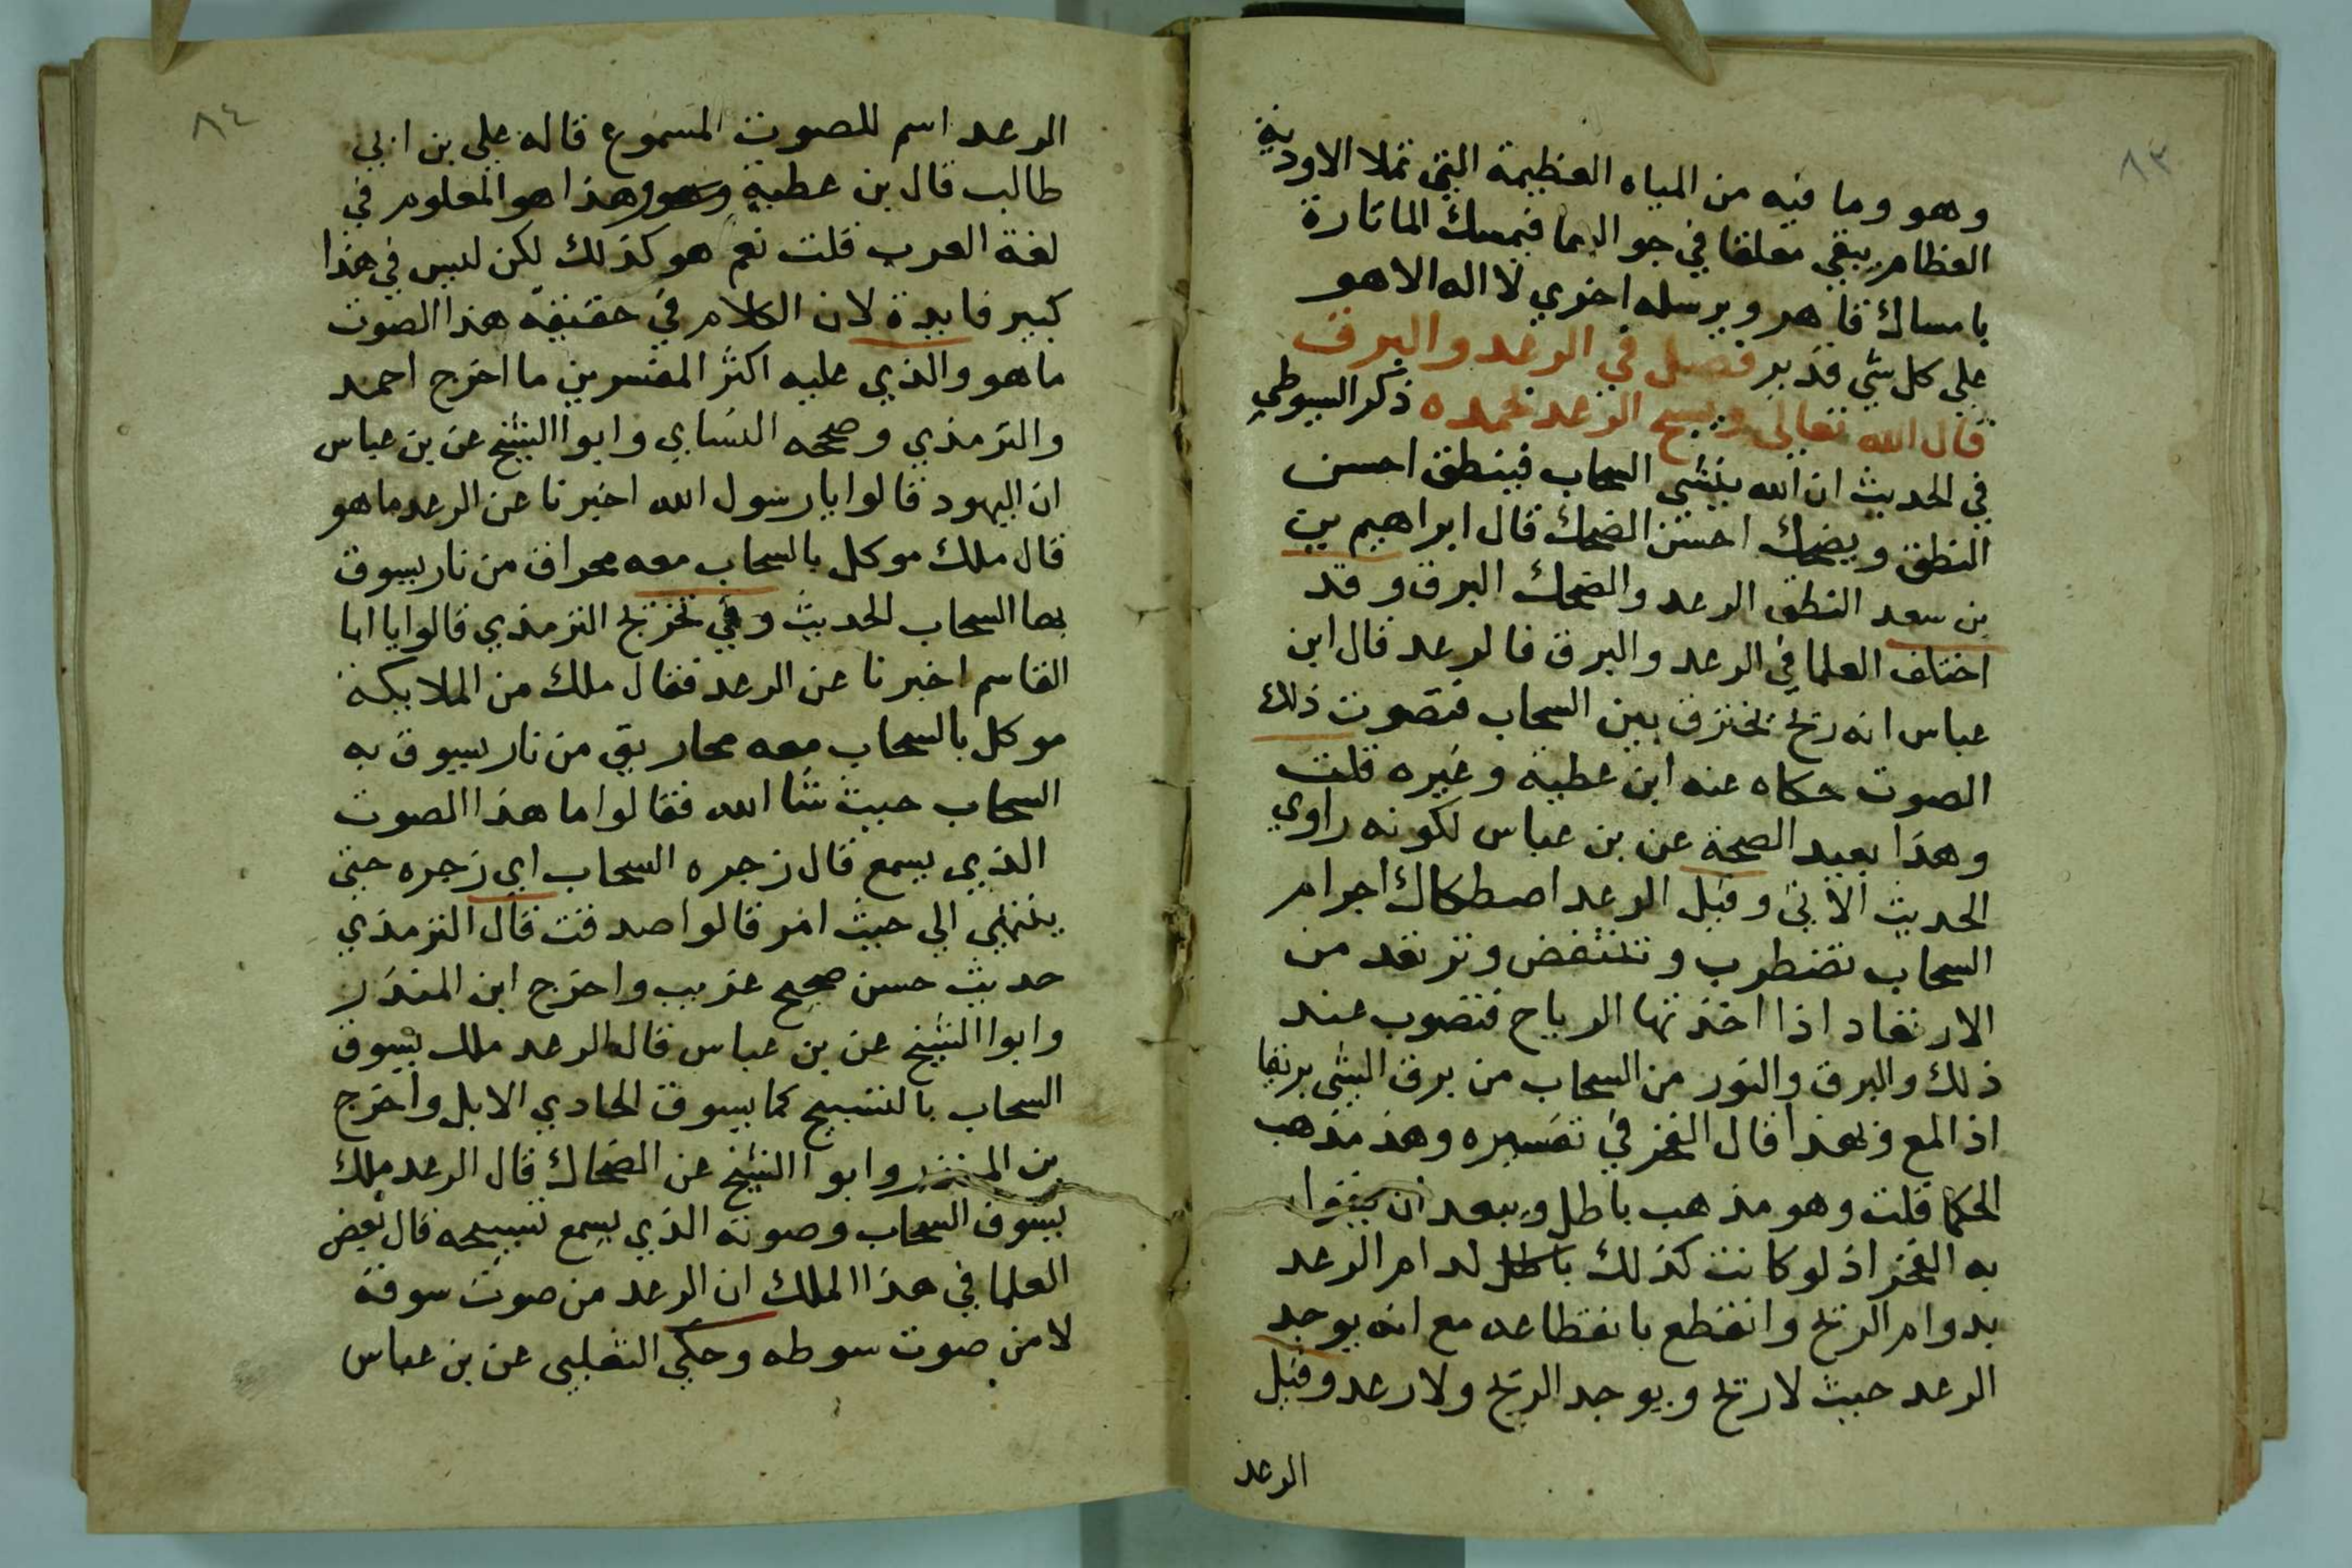 ٨٣
وهو وما فيه من المياه العظيمة التي تملا الاودية
العظام يبقي معلقا في جو السما فيمسك الما تارة
بامساك قاهر ويرسله اخري لا اله الا هو
علي كل شي قدير فصل في الرعد والبرق
قال الله تعالى ويسبح الرعد بحمده ذكر السيوطي
في الحديث ان الله ينشي السحاب فينطق احسن
النطق ويضحك احسن الضحك قال ابراهيم بن
بن سعد النطق الرعد والضحك البرق وقد
اختلف العلما في الرعد والبرق فالرعد قال ابن
عباس انه ريح تخترق بين السحاب فتصوت ذلك
الصوت حكاه عنه ابن عطية وغيره قلت
وهذا بعيد الصحة عن بن عباس لكونه راوي
الحديث الاتي وقيل الرعد اصطكاك اجرام
السحاب تضطرب وتنتفض وترتعد من
الارتعاد اذا اخذتها الرياح فتصوب عند
ذلك والبرق والنور من السحاب من برق الشي بريقا
اذا لمع وبهذا قال الفخر في تفسيره وهذ مذهب
الحكما قلت وهو مذهب باطل ويبعد ان
به الفخر اذ لو كانت كذلك باطل لدام الرعد
بدوام الريح وانقطع بانقطاعه مع انه يوجد
الرعد حيث لا ريح ويوجد الريح ولا رعد وقيل
الرعد
٨٤
الرعد اسم للصوت المسموع قاله علي بن ابي
طالب قال بن عطية وهو وهذا هو المعلوم في
لغة العرب قلت نعم هو كذلك لكن ليس في هذا
كبير فايدة لان الكلام في حقيقة هذا الصوت
ما هو والذي عليه اكثر المفسرين ما اخرج احمد
والترمذي وصححه النساي وابوا الشيخ عن بن عباس
ان اليهود قالوا يا رسول الله اخبرنا عن الرعد ما هو
قال ملك موكل بالسحاب معه محراق من نار يسوق
بها السحاب الحديث وفي تخريج الترمذي قالوا يا ابا
القاسم اخبرنا عن الرعد فقال ملك من الملايكة
موكل بالسحاب معه محاريق من نار يسوق به
السحاب حيث شا الله فقالوا ما هذا الصوت
الذي يسمع قال زجره السحاب اي زجره حتى
ينتهي الي حيث امر قالوا صدقت قال الترمذي
حديث حسن صحيح غريب واخرج ابن المنذر
وابوا الشيخ عن بن عباس قال الرعد ملك يسوق
السحاب بالتسبيح كما يسوق الحادي الابل واخرج
بن المنذر وابوا الشيخ عن الضحاك قال الرعد ملك
يسوق السحاب وصوته الذي يسمع تسبيحه قال بعض
العلما في هذا الملك ان الرعد من صوت سوقة
لا من صوت سوطه وحكي الثعلبي عن بن عباس